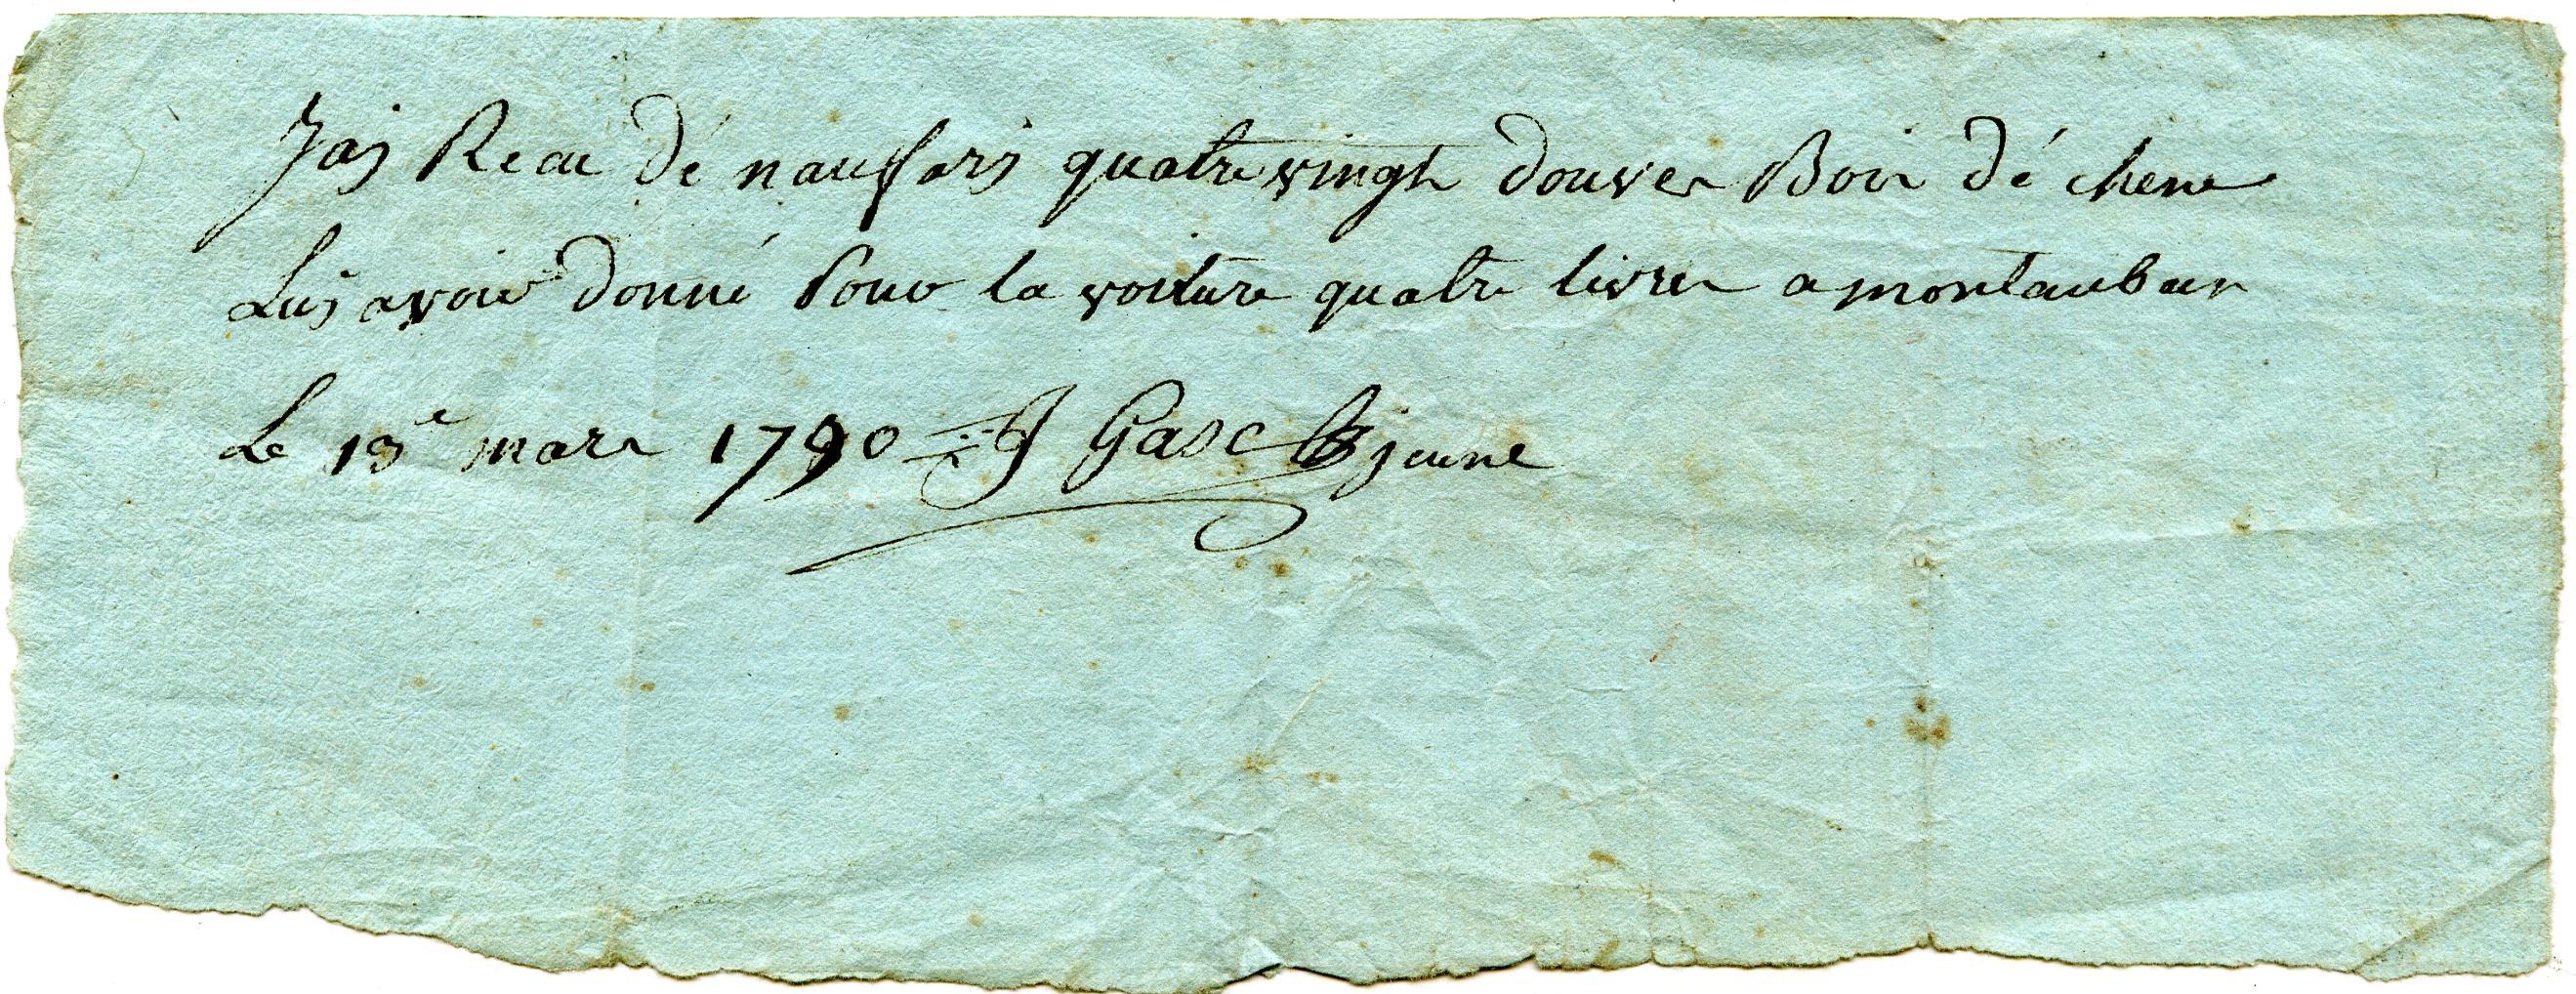 Jay Recu dé nauffary quatre vingt douves Bois dé chene
Luy avoir donné Pour la voiture quatre livres a montauban
Le 13e mars 1790 J Gasc jeune